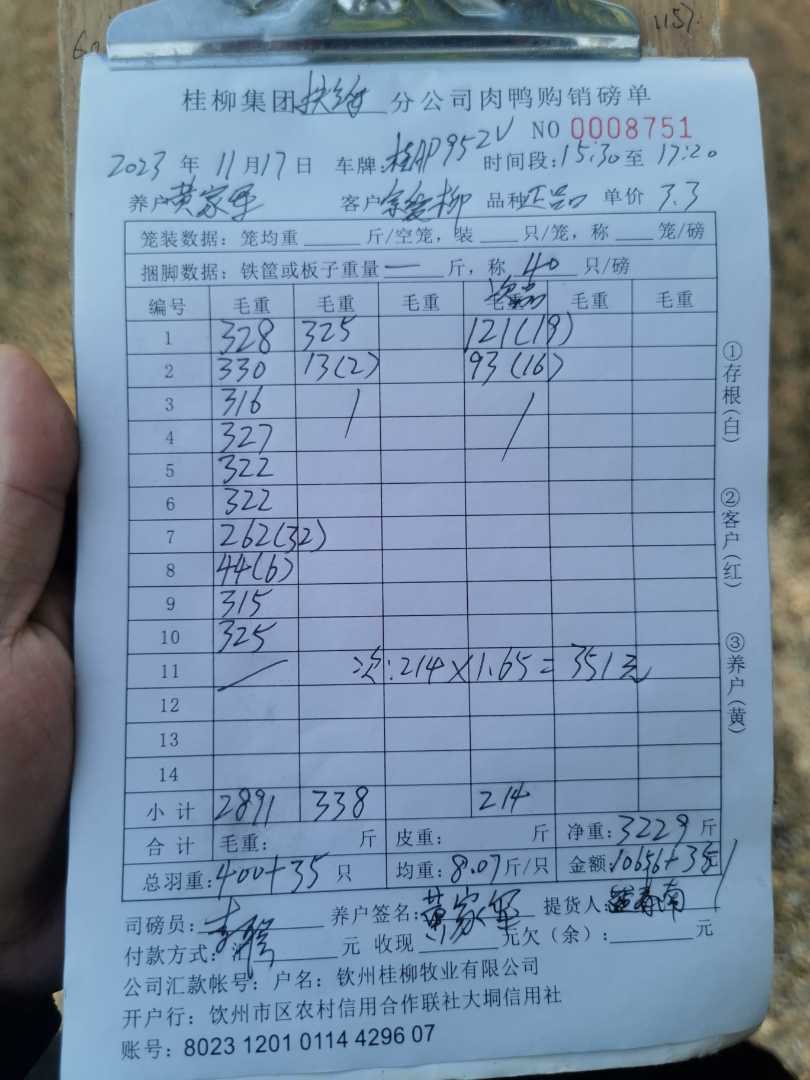 桂柳集团扶绥分公司肉鸭购销磅单
NO 0008751
2023年11月17日 车牌:桂AP952V 时间段:15:30至17:20
养户黄家军 客户 柳 品种正品 单价 3.3
笼装数据：笼均重 斤/空笼，装 只/笼，称 笼/磅
捆脚数据：铁筐或板子重量 — 斤，称 40 只/磅
编号 毛重 毛重 毛重 毛重 次品 毛重 毛重
1 328 325 121(19)
2 330 13(2) 93(16)
3 316
4 327
5 322
6 322
7 262(32)
8 44(6)
9 315
10 325
11 次:214×1.65=351元
12
13
14
小计 2891 338 214
合计 毛重: 斤 皮重: 斤 净重:3229斤
总羽重:400+35只 均重:8.07斤/只 金额:10656+351
司磅员: 养户签名:黄家军 提货人: 南
付款方式: 元 收现 元欠（余）: 元
公司汇款帐号：户名：钦州桂柳牧业有限公司
开户行：钦州市区农村信用合作联社大垌信用社
账号：8023 1201 0114 4296 07
①存根(白)
②客户(红)
③养户(黄)